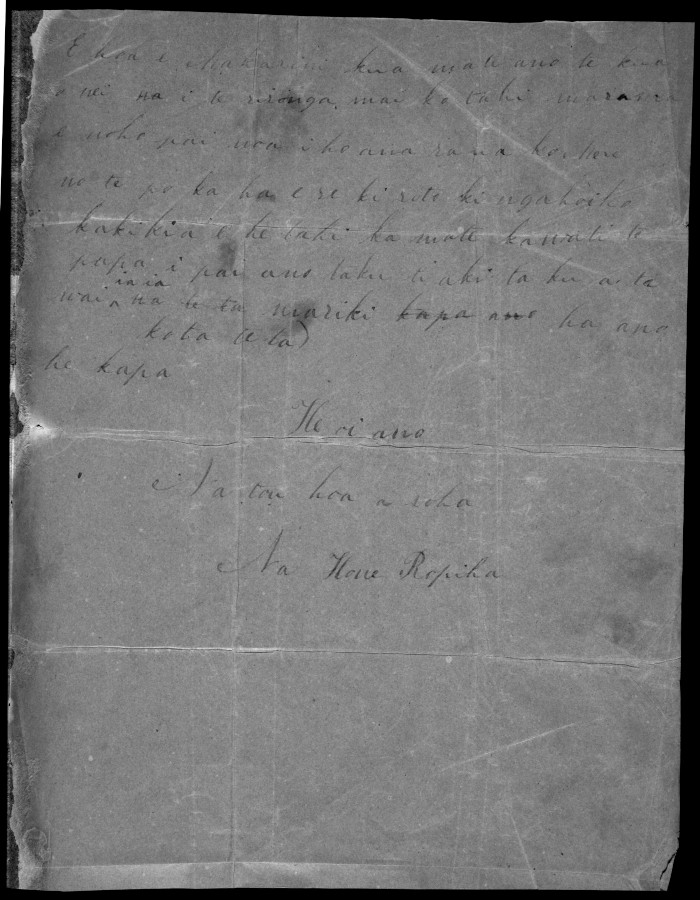 E hoa e Makarini kua mate ano te kua
a nei na i te rironga mai ko tahi marama
e noho pai noa iho ana
no te po ka ha ere ki roto ki nga hoiho
kakikia e he tahi ka mate kawati te
papa i pai ano taku ti aki ta ku a ta
wai iaia na te ta mariki kapa ano ha ano
kota te ta)
he kapa
He oi ano
Na tou hoa a roha
Na Hone Ropiha